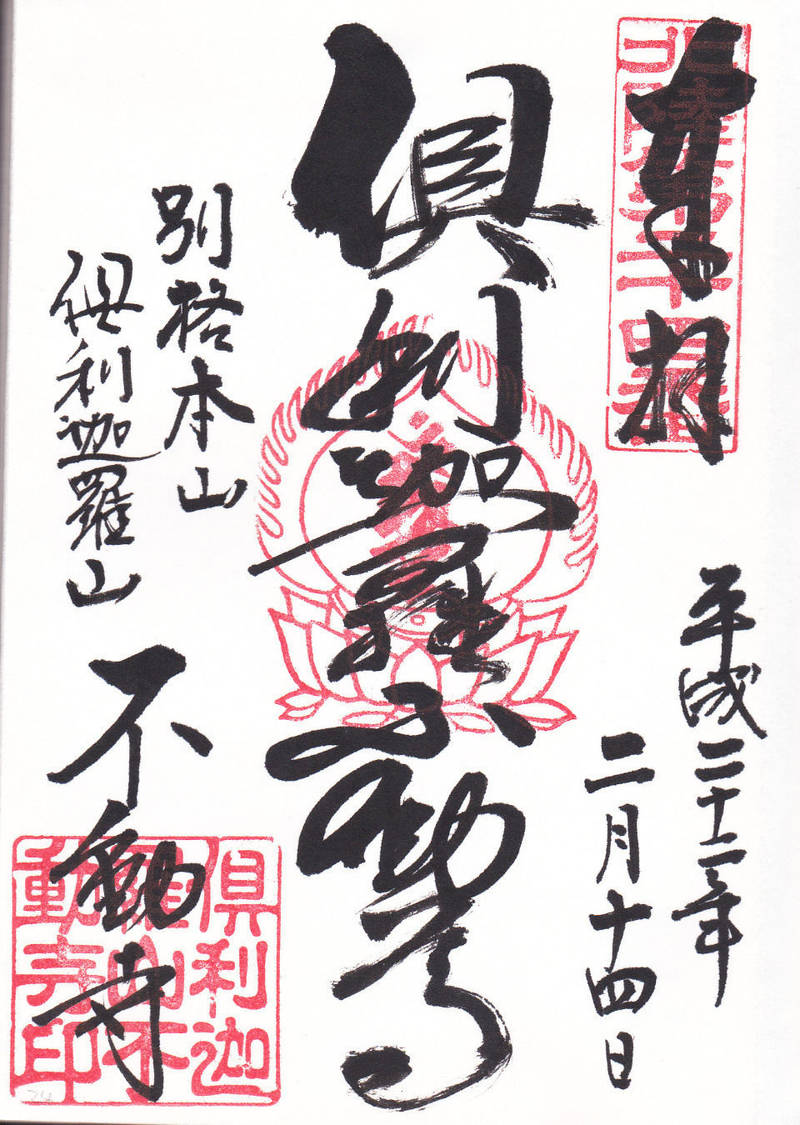 奉拝
平成二十二年
二月十四日
倶利迦羅不動尊
別格本山
倶利迦羅山
不動寺
倶利迦
羅山不
動寺印